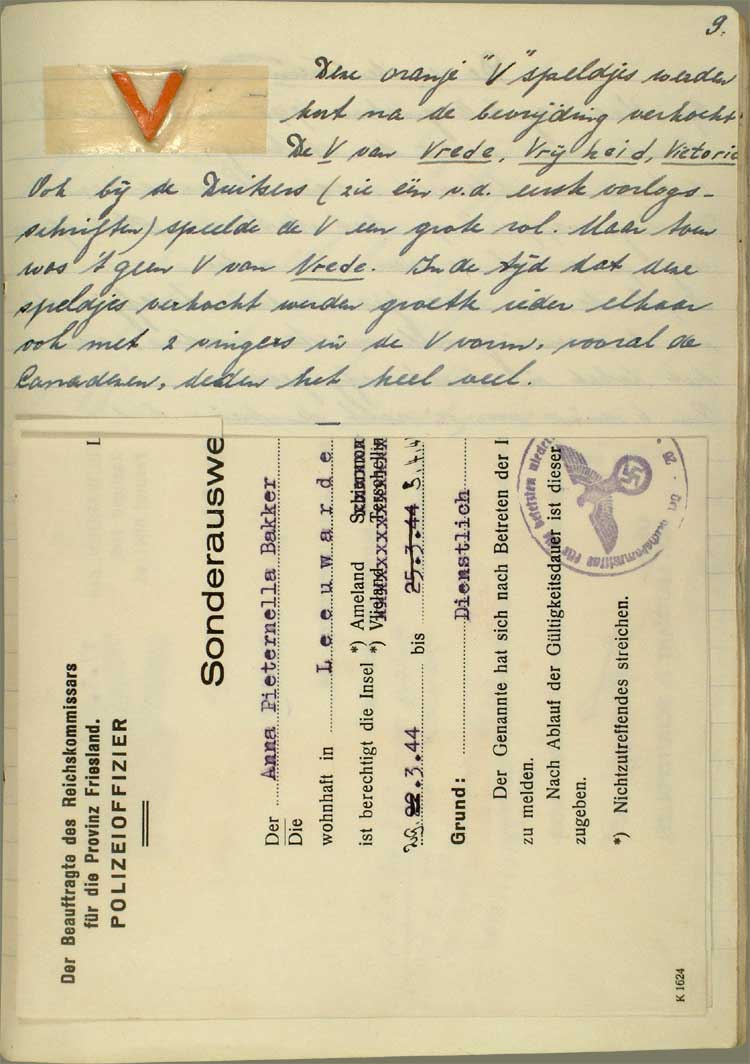 9.
V
Deze oranje "V" speldjes werden
kort na de bevrijding verkocht
De V van Vrede, Vrijheid, Victorie
Ook bij de Duitsers (zie één v.d. eerste oorlogs-
schriften) speelde de V een grote rol. Maar toen
was 't geen V van Vrede. In de tijd dat deze
speldjes verkocht werden groette ieder elkaar
ook met 2 vingers in de V vorm, vooral de
Canadezen, deden het heel veel.
Der Beauftragte des Reichskommissars
für die Provinz Friesland.
POLIZEIOFFIZIER
L
Sonderauswe
Der Anna Pieternella Bakker
Die
wohnhaft in Leeuwarde
ist berechtigt die Insel *) Ameland Schiermon
*) Vlieland Terschellin
22.3.44 bis 25.3.44
Grund: Dienstlich
Der Genannte hat sich nach Betreten der I
zu melden.
Nach Ablauf der Gültigkeitsdauer ist dieser
zugeben.
*) Nichtzutreffendes streichen.
K 1624